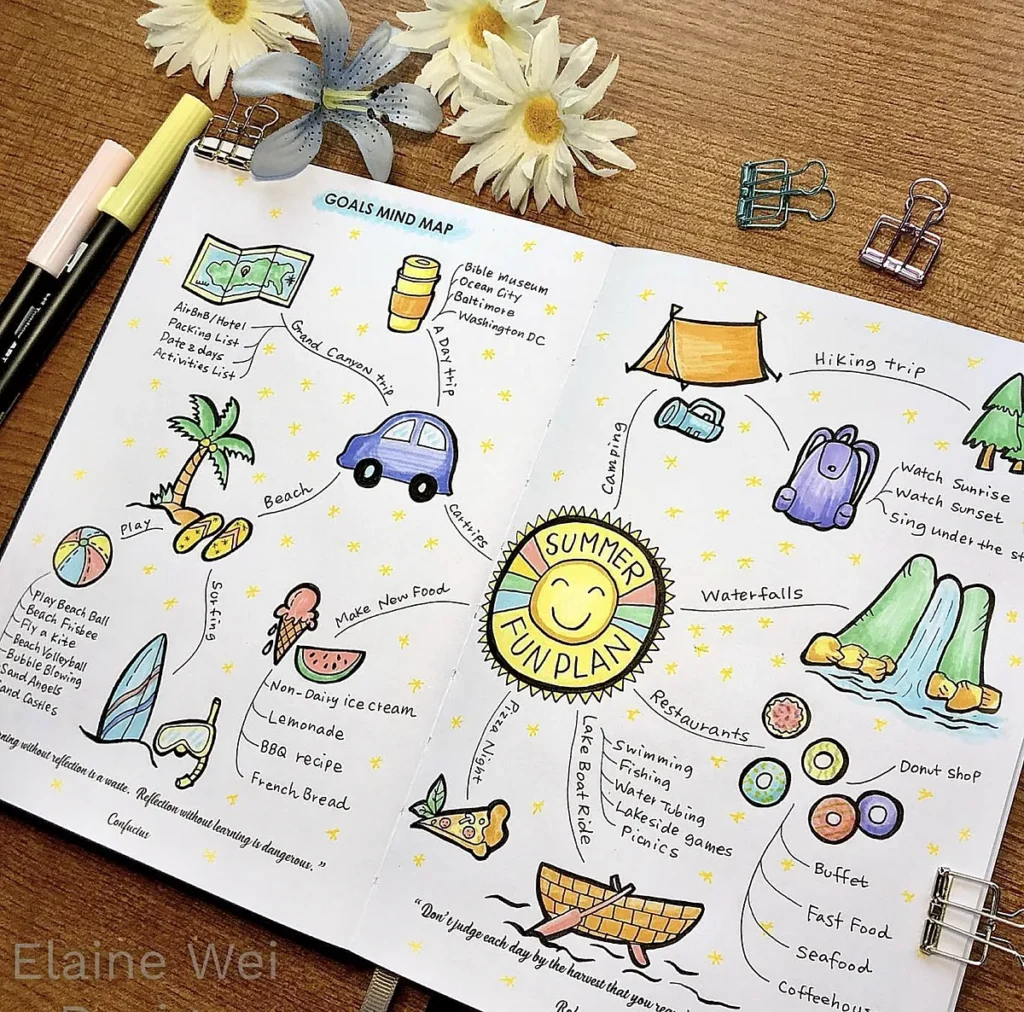 GOALS MIND MAP
AirBnB/Hotel
Packing List
Date & days
Activities List
Grand Canyon trip
Bible Museum
Ocean City
Baltimore
Washington DC
A Day trip
Beach
Play
Play Beach Ball
Beach Frisbee
Fly a Kite
Beach Volleyball
Bubble Blowing
Sand Angels
Castles
Surfing
Cartrips
Make New Food
Non-Dairy ice cream
Lemonade
BBQ recipe
French Bread
without reflection is a waste. Reflection without learning is dangerous."
Confucius
SUMMER
FUN PLAN
Camping
Hiking trip
Watch Sunrise
Watch Sunset
Sing under the
Waterfalls
Restaurants
Donut shop
Buffet
Fast Food
Seafood
Lake Boat Ride
Swimming
Fishing
Water Tubing
Lakeside games
Picnics
Pizza Night
"Don't judge each day by the harvest that you
Elaine Wei